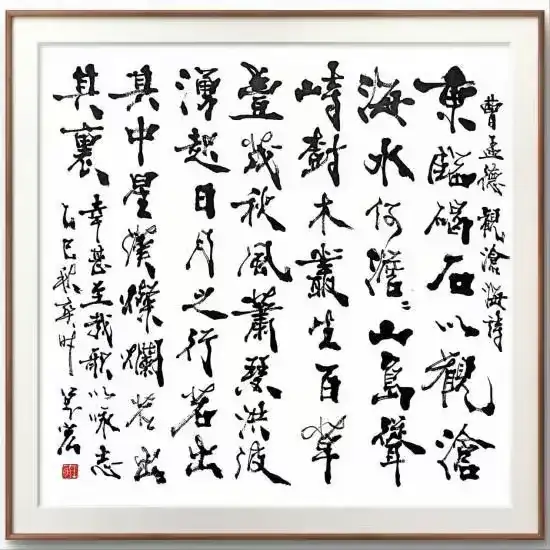 曹孟德 觀滄海詩
東臨碣石以觀滄
海水何澹〻山島聳
峙樹木叢生百草
豐茂秋風蕭瑟洪波
湧起日月之行若出
其中星漢燦爛若出
其裏 幸甚至哉歌以詠志
乙巳秋